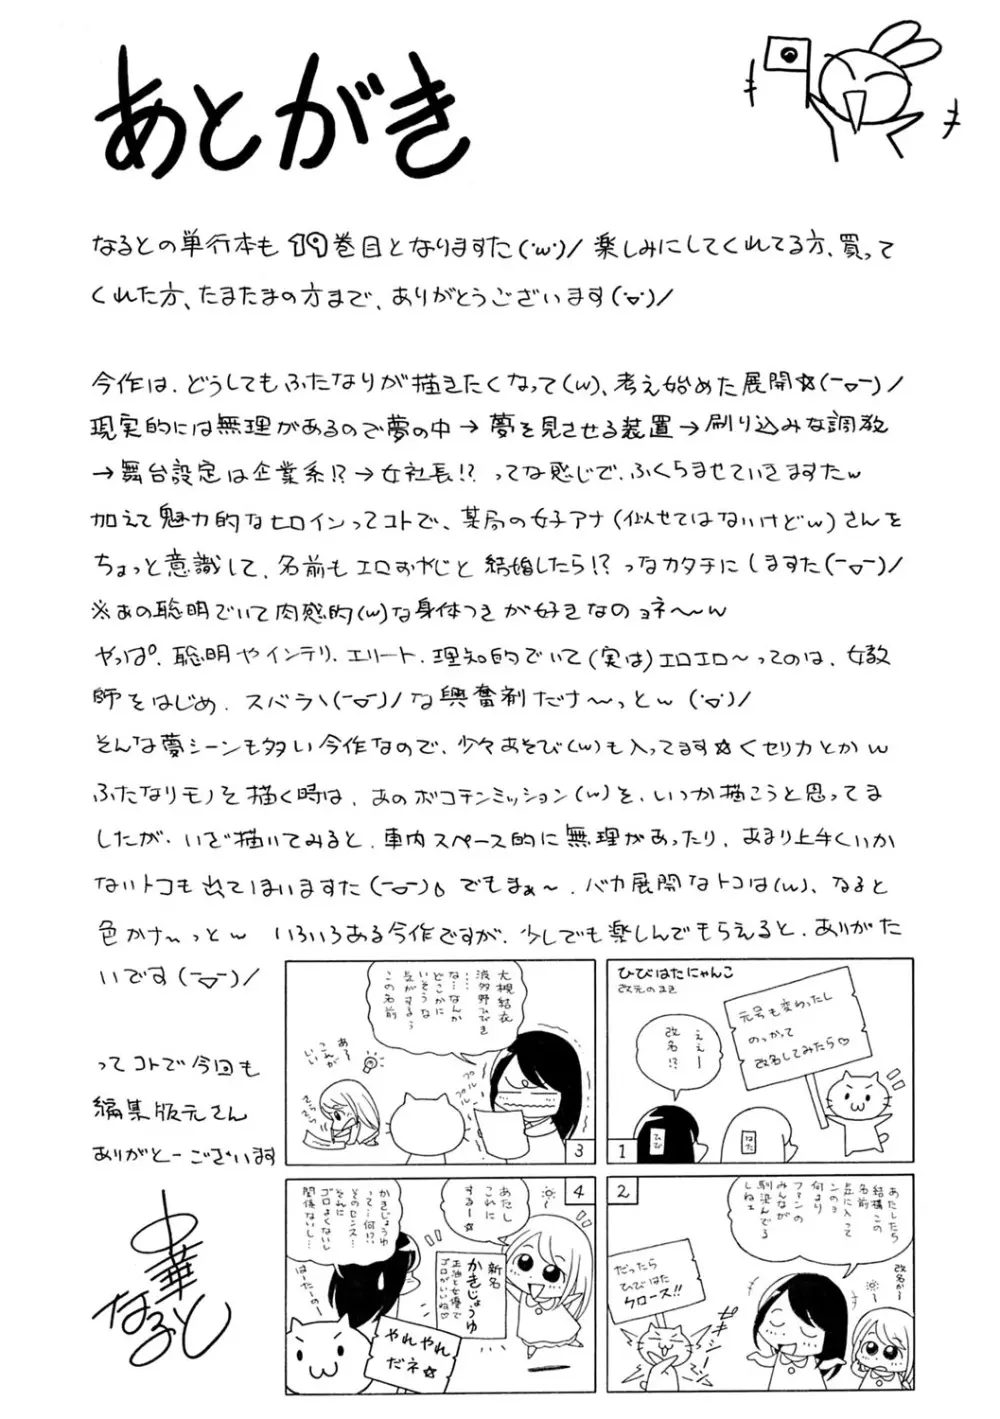 あとがき
なるとの単行本も19巻目となりますた(・ω・)/ 楽しみにしてくれてる方、買って
くれた方、たまたまの方まで、ありがとうございます(・▽・)/
今作は、どうしてもふたなりが描きたくなって(w)、考え始めた展開☆(ー▽ー)/
現実的には無理があるので夢の中→夢を見させる装置→刷り込みな調教
→舞台設定は企業系!?→女社長!? ってな感じで、ふくらませていきますたw
加えて魅力的なヒロインってコトで、某局の女子アナ(似せてはないけどw)さんを
ちょっと意識して、名前もエロおやじと結婚したら!? っなカタチにしますた(ー▽ー)/
※あの聡明でいて肉感的(w)な身体つきが好きなのョネ〜〜w
やっぱ、聡明やインテリ、エリート、理知的でいて(実は)エロエロ〜ってのは、女教
師をはじめ、スバラ\(ー▽ー)/な興奮剤だナ〜っとw (・▽・)/
そんな夢シーンも多い今作なので、少々あそび(w)も入ってます☆くセリカとかw
ふたなりモノを描く時は、あのボコチンミッション(w)を、いつか描こうと思ってま
したが、いざ描いてみると、車内スペース的に無理があったり、あまり上手くいか
ないトコも出てしまいますた(ー▽ー)。でもまぁ〜、バカ展開なトコは(w)、なると
色かナ〜っとw いろいろある今作ですが、少しでも楽しんでもらえると、ありがた
いです(ー▽ー)/
ってコトで今回も
編集版元さん
ありがとーございます
中華なると
ひびはたにゃんこ
改元のまき
元号も変わったし
のっかって
改名してみたら♡
ええー
改名!?
ひび
はた
1
あたしたち
結構この
名前
気に入って
ンのョ
何より
ファンの
みんなが
馴染んでる
しねェ
改名かー
だったら
ひびはた
クロース!!
ギギ
シャー
2
大槻結衣
波多野ひびき
……
な…なんか
どこかに
いそうな
気がするぅ
この名前
プル
プル
プル
あるっ
こんなが
いい
さらさら
3
あたし
これに
するー☆
新名
かきじょうゆ
正油と女優で
ゴロがいいね♡
かきじょうゆ
って…何!?
そのセンス…
それに
ゴロよくないし
関係ないし…
はったーのー
やれやれ
だネ☆
4